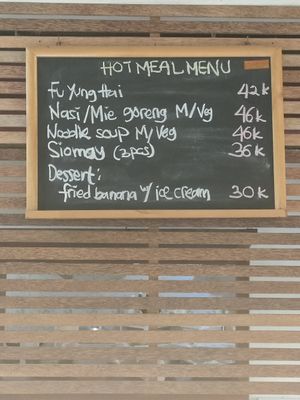 HOT MEAL MENU
Fu Yung Hai 42k
Nasi/Mie goreng M/Veg 46k
Noodle soup M/Veg 46k
Siomay (3pcs) 36k
Dessert:
fried banana w/ ice cream 30k